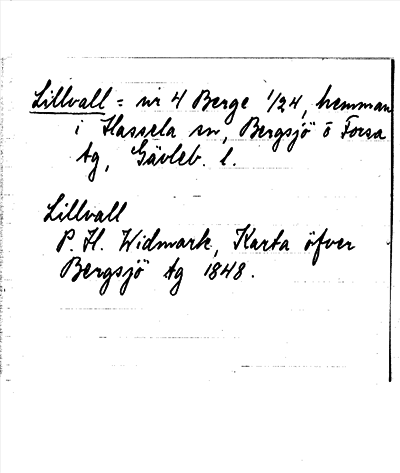 Lillvall = nr 4 Berge 1/24, hemman
i Hassela sn, Bergsjö o Forsa
tg, Gävleb. l.
Lillvall
P. H. Widmark, Karta öfver
Bergsjö tg 1848.